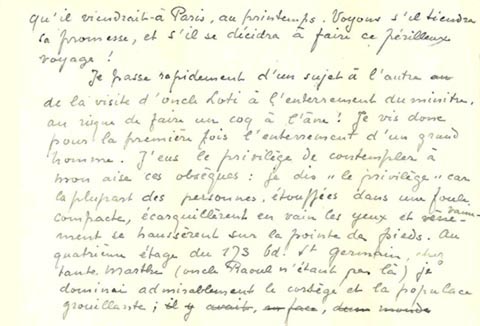 qu'il viendrait à Paris, au printemps. Voyons s'il tiendra
sa promesse, et s'il se décidra à faire ce périlleux
voyage !
Je passe rapidement d'un sujet à l'autre
de la visite d'oncle Loti à l'enterrement du ministre,
au risque de faire un coq à l'âne ! Je vis donc
pour la première fois l'enterrement d'un grand
homme. J'eus le privilège de contempler à
mon aise ces obsèques : je dis "le privilège" car
la plupart des personnes, étouffées dans une foule
compacte, écarquillèrent en vain les yeux et
vainement se haussèrent sur la pointe des pieds. Au
quatrième étage du 173 bd. St Germain, chez
tante Marthe (oncle Raoul n'étant pas là) je
dominai admirablement le cortège et la populace
grouillante ; il y avait, en face, dans monde